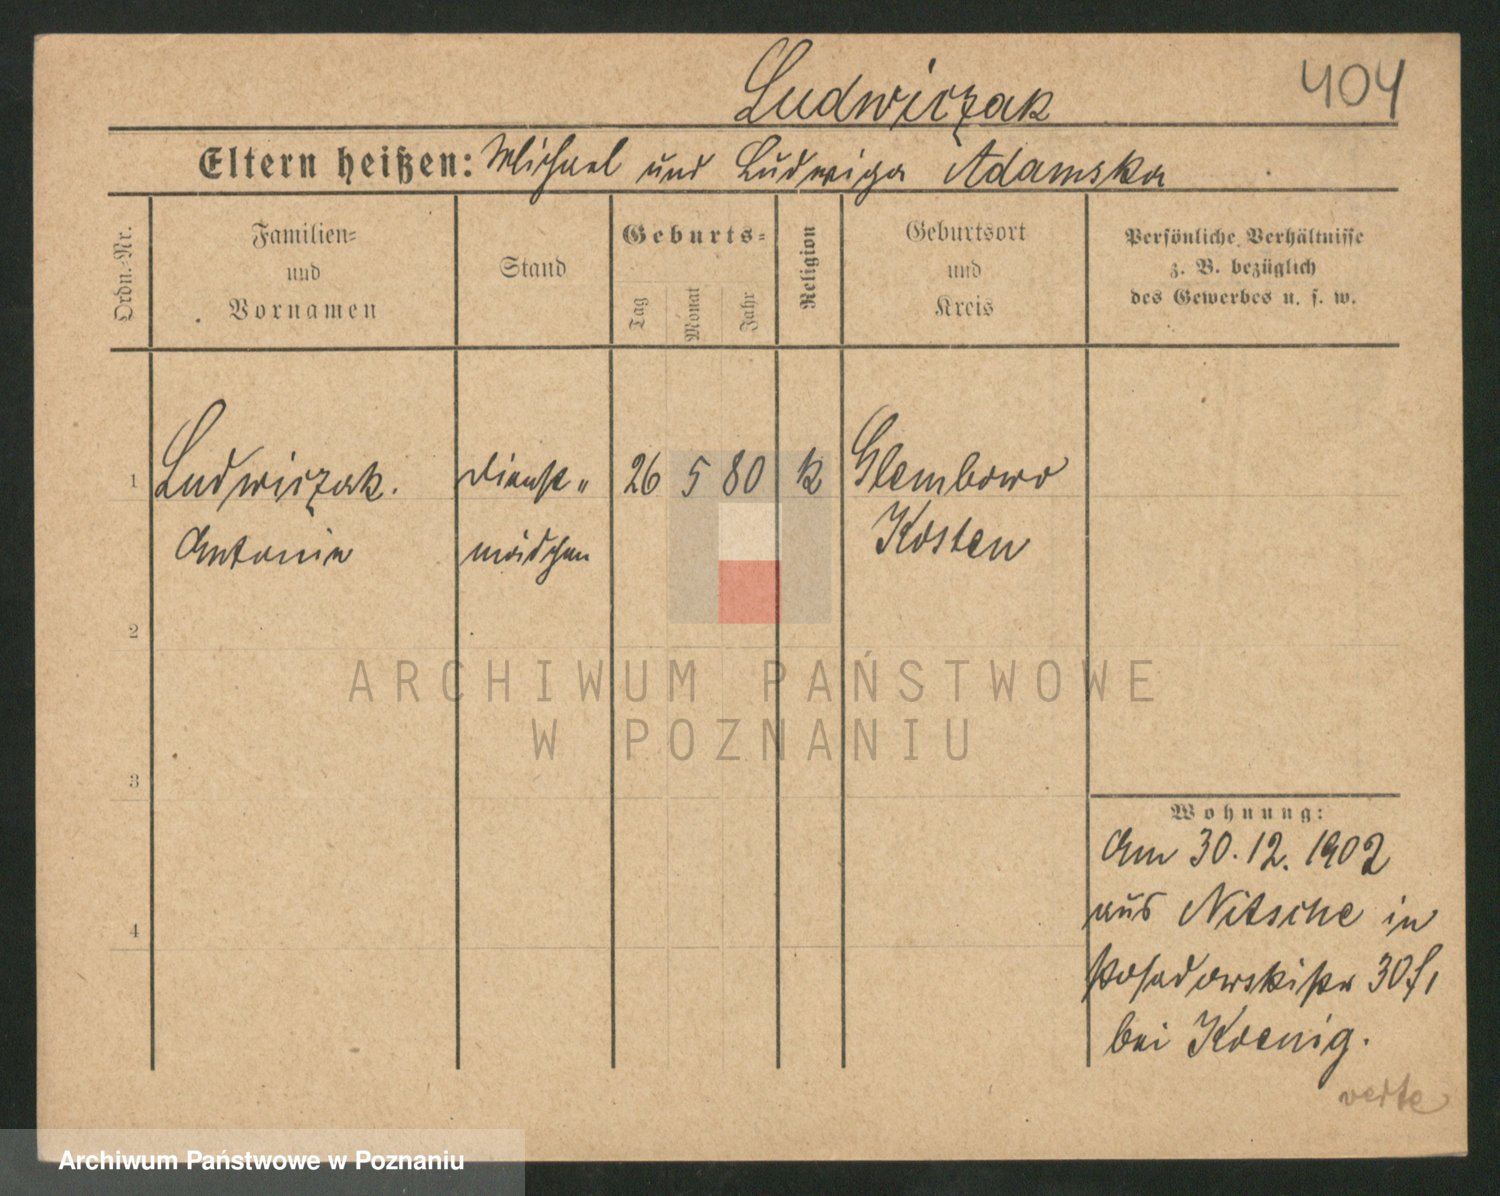 Ludwiczak 404
Eltern heißen: Michael und Ludwiga Adamska
Ordn.-Nr.
Familien-
und
Vornamen
Stand
Geburts-
Tag
Monat
Jahr
Religion
Geburtsort
und
Kreis
Persönliche Verhältnisse
z. B. bezüglich
des Gewerbes u. s. w.
1 Ludwiczak. Dienst- 26 5 80 k Glembowo
Antonie mädchen Kosten
2
3
4
Wohnung:
Am 30.12.1902
aus Nitsche in
Posadowskistr 30
bei Koenig.
verte
ARCHIWUM PAŃSTWOWE
W POZNANIU
Archiwum Państwowe w Poznaniu